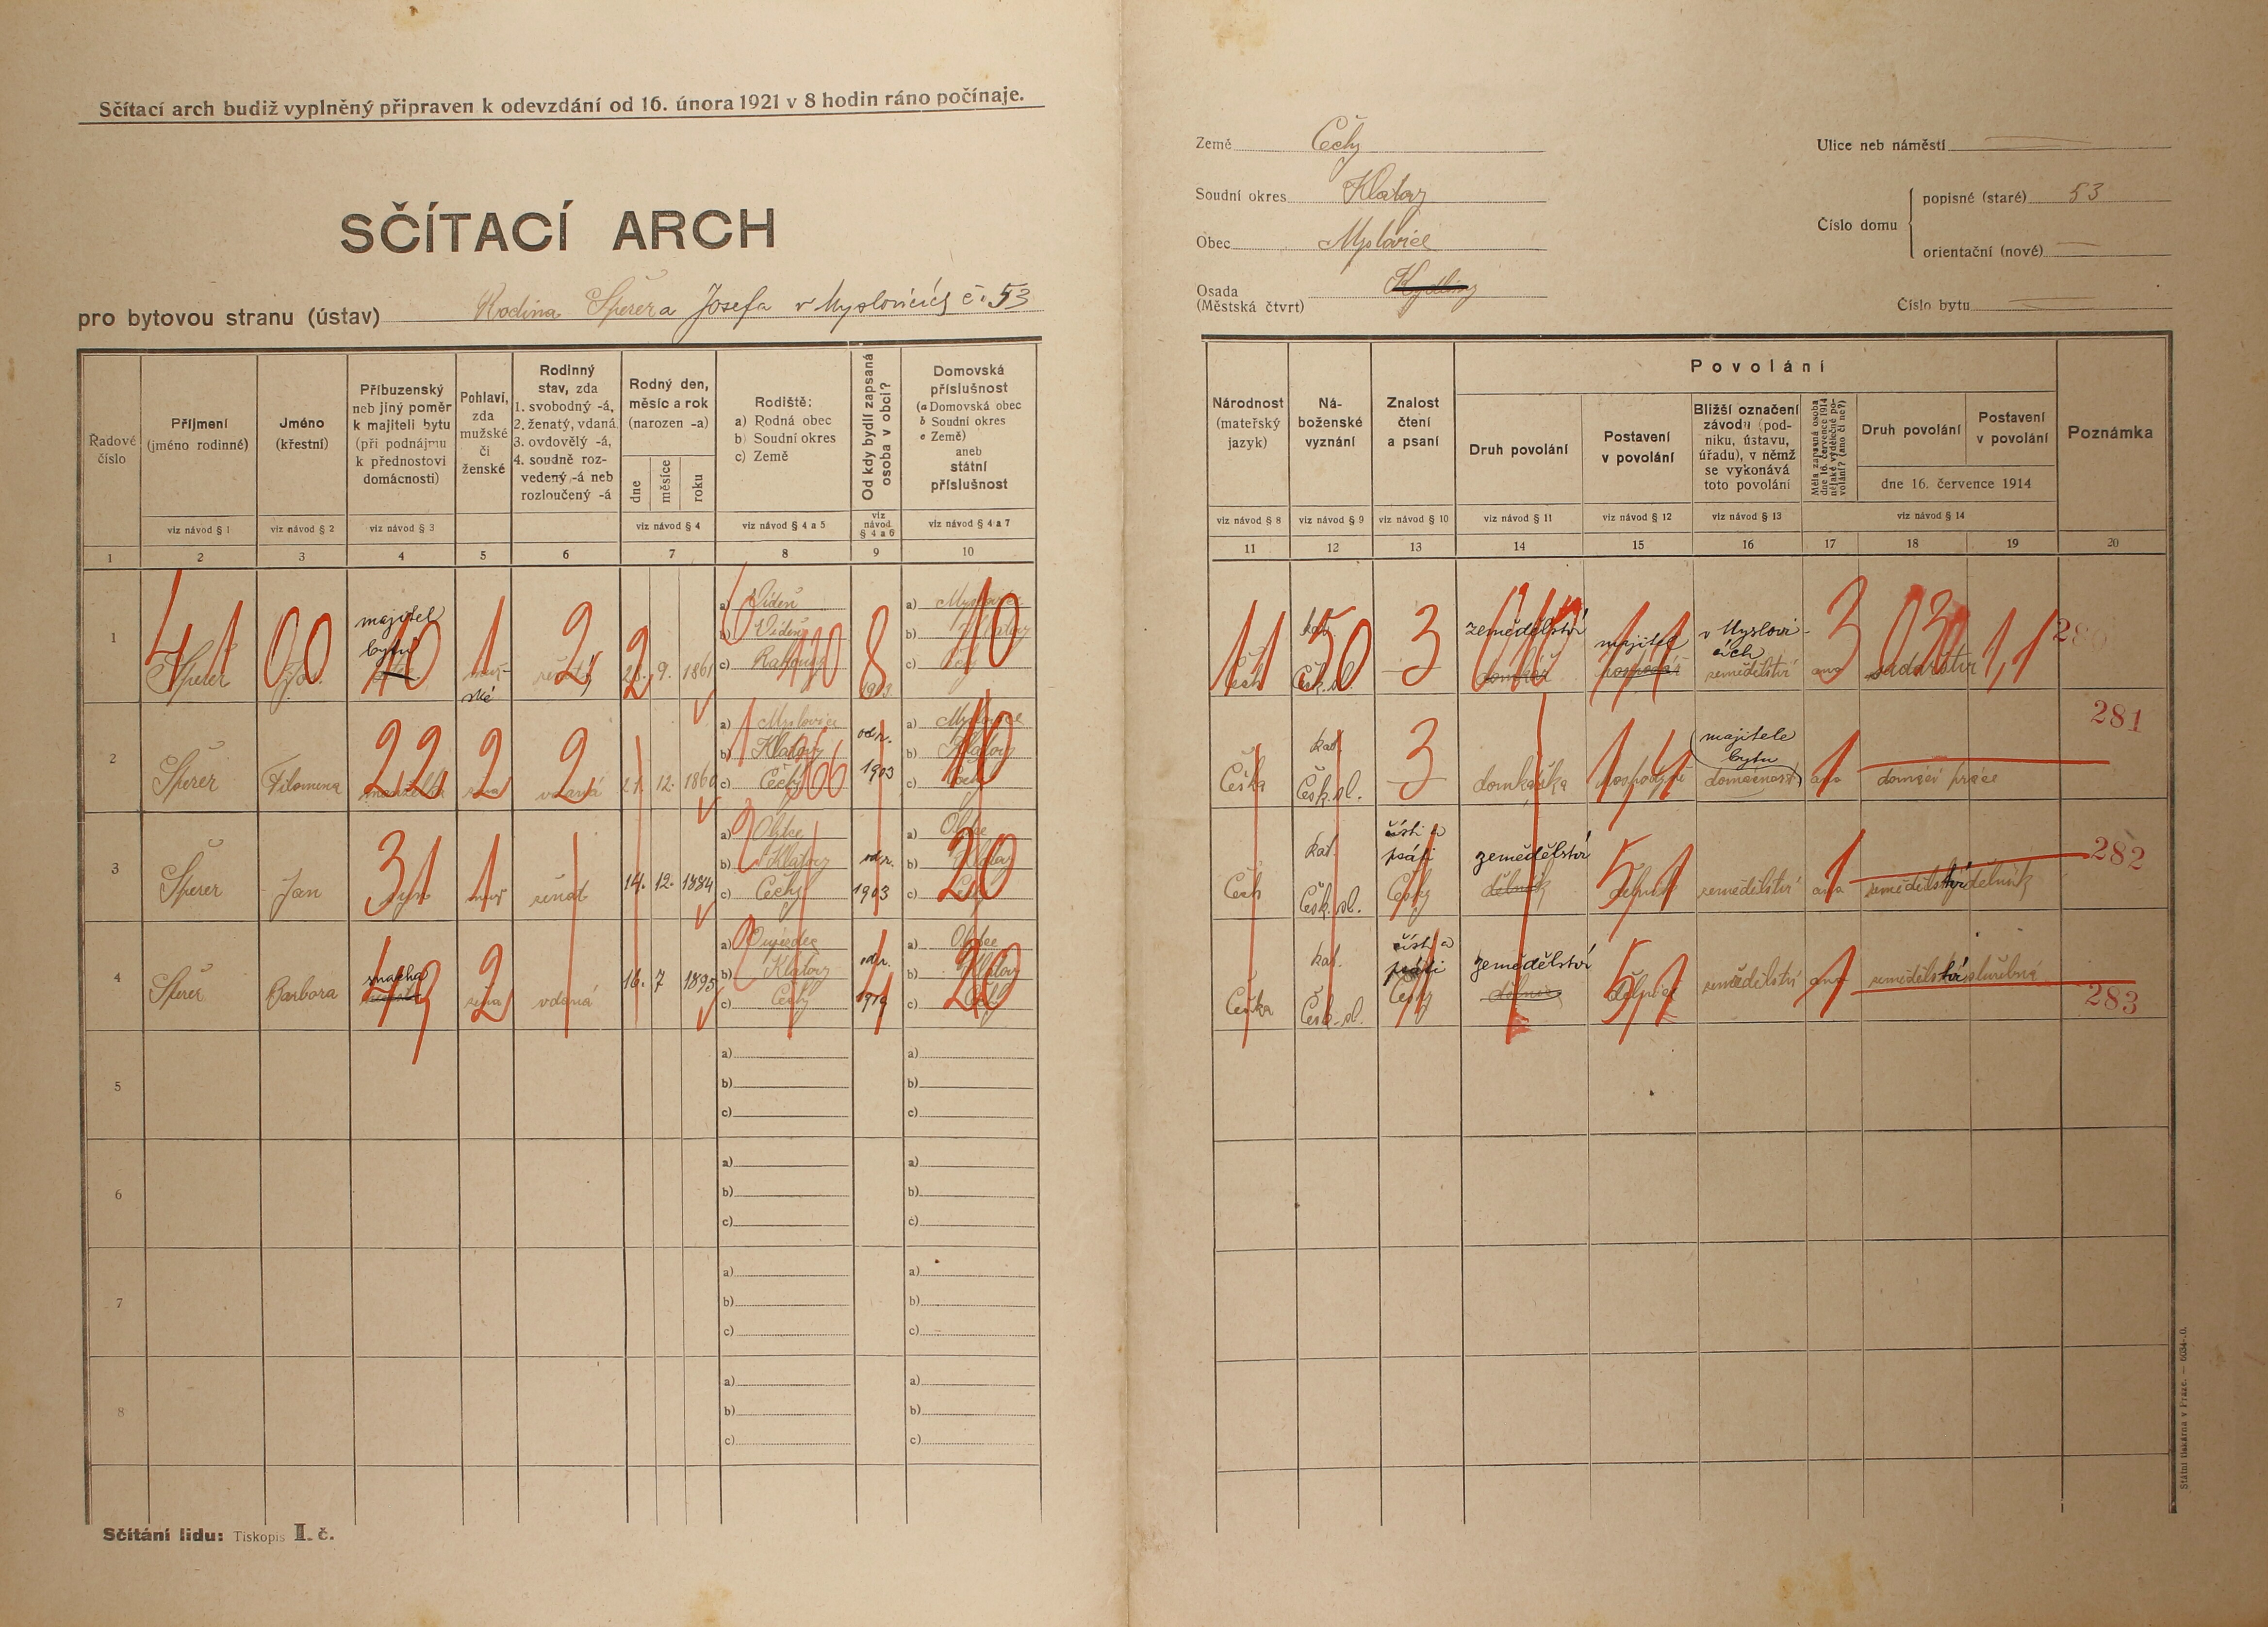 Sčítací arch budiž vyplněný připraven k odevzdání od 16. února 1921 v 8 hodin ráno počínaje.
SČÍTACÍ ARCH
pro bytovou stranu (ústav) Rodina Šperera Josefa v Myslovicích č. 53
Země Čechy
Soudní okres Klatovy
Obec Myslovice
Osada
(Městská čtvrt)
Ulice neb náměstí
Číslo domu
popisné (staré) 53
orientační (nové)
Číslo bytu
Řadové
číslo
Příjmení
(jméno rodinné)
viz návod § 1
Jméno
(křestní)
viz návod § 2
Příbuzenský
neb jiný poměr
k majiteli bytu
(při podnájmu
k přednostovi
domácnosti)
viz návod § 3
Pohlaví,
zda
mužské
či
ženské
Rodinný
stav, zda
1. svobodný -á,
2. ženatý, vdaná
3. ovdovělý -á,
4. soudně roz-
vedený -á neb
rozloučený -á
Rodný den,
měsíc a rok
(narozen -a)
dne
měsíce
roku
viz návod § 4
Rodiště:
a) Rodná obec
b) Soudní okres
c) Země
viz návod § 4 a 5
Od kdy bydlí zapsaná
osoba v obci?
viz
návod
§ 4 a 6
Domovská
příslušnost
(a Domovská obec
b Soudní okres
c Země)
aneb
státní
příslušnost
viz návod § 4 a 7
1 2 3 4 5 6 7 8 9 10
Národnost
(mateřský
jazyk)
viz návod § 8
Ná-
boženské
vyznání
viz návod § 9
Znalost
čtení
a psaní
viz návod § 10
Povolání
Druh povolání
viz návod § 11
Postavení
v povolání
viz návod § 12
Bližší označení
závodu (pod-
niku, ústavu,
úřadu), v němž
se vykonává
toto povolání
viz návod § 13
Měla zapsaná osoba
dne 16. července 1914
nějaké výdělečné po-
volání? (ano či ne?)
Druh povolání
Postavení
v povolání
dne 16. července 1914
viz návod § 14
Poznámka
11 12 13 14 15 16 17 18 19 20
1
Šperer
majitel
bytu
28. 9. 1861
a) Vídeň
b) Vídeň
c) Rakousy
a) Myslovice
b) Klatovy
c) Čechy
Čech
kat.
zemědělství
majitel
v Myslovi-
cích
zemědělství
ano
41 00 10 1 2 2 8 10
11 50 3 3 1,1
2
Šperer
Filomena
manželka
vdaná
21. 12. 1860
a) Myslovice
b) Klatovy
c) Čechy
od r.
1903
a) Myslovice
b) Klatovy
c) Čechy
22 2 2 10
Češka
kat.
Česk. sl.
3
domkářka
hospodyně
majitele
bytu
domácnost
ano
domácí práce
281
3
Šperer
Jan
syn
ženat
14. 12. 1884
b) Klatovy
c) Čechy
od r.
1903
b) Klatovy
c) Čechy
31 1 20
Čech
kat.
Česk. sl.
čísti a
psáti
Česky
zemědělství
dělník
zemědělství
ano
zemědělství dělník
51 1
282
4
Šperer
Barbora
snacha
vdaná
16. 7 1895
b) Klatovy
c) Čechy
od r.
1919
b) Klatovy
c) Čechy
43 2 20
Češka
kat.
Česk. sl.
čísti a
psáti
Česky
zemědělství
dělnice
zemědělství
ano
zemědělství služebná
51 1
283
5
a)
b)
c)
a)
b)
c)
6
a)
b)
c)
a)
b)
c)
7
a)
b)
c)
a)
b)
c)
8
a)
b)
c)
a)
b)
c)
Sčítání lidu: Tiskopis I. č.
Státní tiskárna v Praze. — 6034-.0.